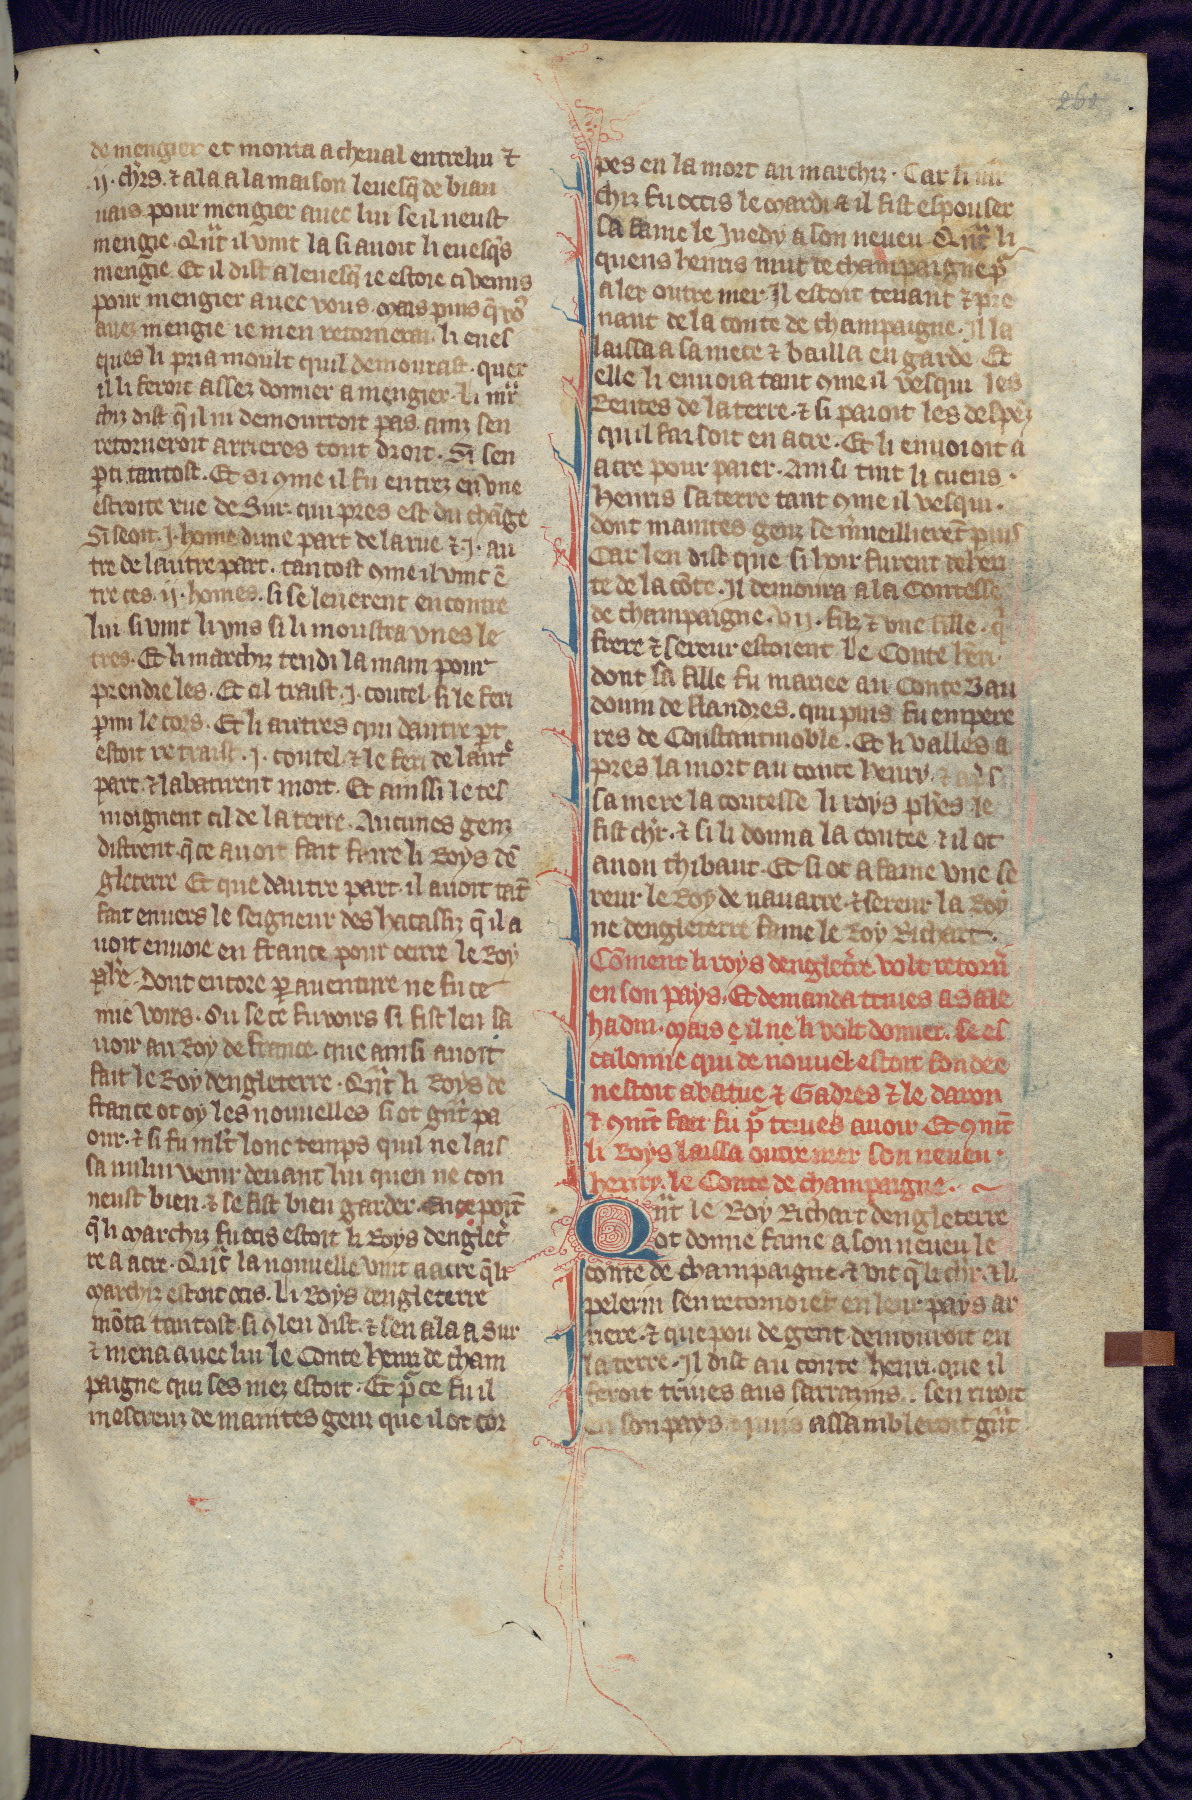 261
de mengier et monta a cheual entre lui ⁊
.ij. chrs. ⁊ ala a la maison leuesq̃ de biau
uais pour mengier auec lui se il neust
mengie. Qñt il vint la si auoit li euesq̃s
mengie. Et il dist a leuesq̃ ie estoie ci venus
pour mengier auec vous. Mais puis q̃ vo9
auez mengie ie men retornerai. li eues
ques li pria moult quil demourast. quer
il li feroit assez donner a mengier. li mar
chiz dist q̃ il ni demourroit pas. ainz sen
retorneroit arrieres tout droit. Si sen
pti tantost. Et si 9me il fu entrez en vne
estroite rue de Sur. qui pres est du chãge
Si seoit .j. home dune part de la rue ⁊ .j. au
tre de lautre part. tantost 9me il vint ẽ
tre ces .ij. homes. si se leuerent encontre
lui. si vint li vns si li moustra vnes le
tres. Et li marchiz tendi la main pour
prendre les. Et cil traist .j. coutel si le feri
pmi le cors. Et li autres qui dautre pt
estoit re traist .j. coutel ⁊ le feri de laut̃
part. ⁊ labatirent mort. Et ainssi le tes
moignent cil de la terre. Aucunes genz
distrent q̃ ce auoit fait faire li Roys dẽ
gleterre Et que dautre part il auoit tãt
fait enuers le seigneur des hacassiz q̃ il a
uoit enuoie en france pour ocirre le Roy
phe. Dont encore par auenture ne fu ce
mie voirs. Ou se ce fu voirs si fist len sa
uoir au Roy de france. que ainsi auoit
fait le Roy dengleterre. Qñt li Roys de
france ot oy les nouuelles si ot gñt pa
our. ⁊ si fu mlt lonc temps quil ne lais
sa nului venir deuant lui quen ne con
neust bien ⁊ se fist bien garder. En ce point
q̃ li Marchiz fu ocis estoit li Roys denglet̃
re a acre. Qñt la nouuelle vint a acre q̃ li
Marchiz estoit ocis. li Roys dengleterre
mõta tantost si 9 len dist. ⁊ sen ala a Sur
⁊ mena auec lui le Conte henri de cham
paigne qui ses niez estoit. Et p̃ ce fu il
mescreuz de maintes genz que il ot cor
pes en la mort au marchiz. Car li mar
chiz fu occis le Mardi ⁊ il fist espouser
sa fame le Juedy a son neueu. Qñt li
quens henris mut de champaigne p̃
aler outre mer. Il estoit tenant ⁊ pre
nant de la conte de champaigne. Il la
laissa a sa mere ⁊ bailla en garde. Et
elle li enuoia tant 9me il vesqui les
Rentes de la terre. ⁊ si paioit les despẽz
quil faisoit en acre. Et li enuoioit a
acre pour paier. Ainsi tint li cuens
henris sa terre tant 9me il vesqui.
dont maintes genz se m̃ueillierẽt puis
Car len dist que si hoir furent desheri
te de la cõte. Il demoura a la Contesse
de champaigne .vij. filz ⁊ vne fille. q̃
frere ⁊ sereur estoient le Conte hẽri.
dont sa fille fu mariee au Conte Bau
douin de flandres. qui puis fu empere
res de Constantinoble. Et li valles a
pres la mort au conte henry ⁊ aps
sa mere la contesse li roys phes le
fist chr. ⁊ si li donna la contee ⁊ il ot
a non thibaut. Et si ot a fame vne se
reur le Roy de nauarre. ⁊ sereur la Roy
ne dengleterre fame le Roy Richart.
Cõment li roys dengletre volt retorñ
en son pays. Et demanda triues a Sale
hadin. Mais il ne li volt donner. se es
calonne qui de nouuel estoit fondee
nestoit abatue ⁊ Gadres ⁊ le daron
⁊ 9mt fait fu p̃ triues auoir Et 9mt
li Roys laissa outre mer son neueu
henry. le Conte de champaigne.
Qñt le Roy Richart dengleterre
ot donne fame a son neueu le
conte de champaigne. ⁊ vit q̃ li chr. ⁊ li
pelerin sen retornoiet en leur pays ar
riere. ⁊ que pou de gent demouroit en
la terre. Il dist au conte henri. que il
feroit triues aus sarrazins. sen riroit
en son pays. ⁊ puis assambleroit gñt